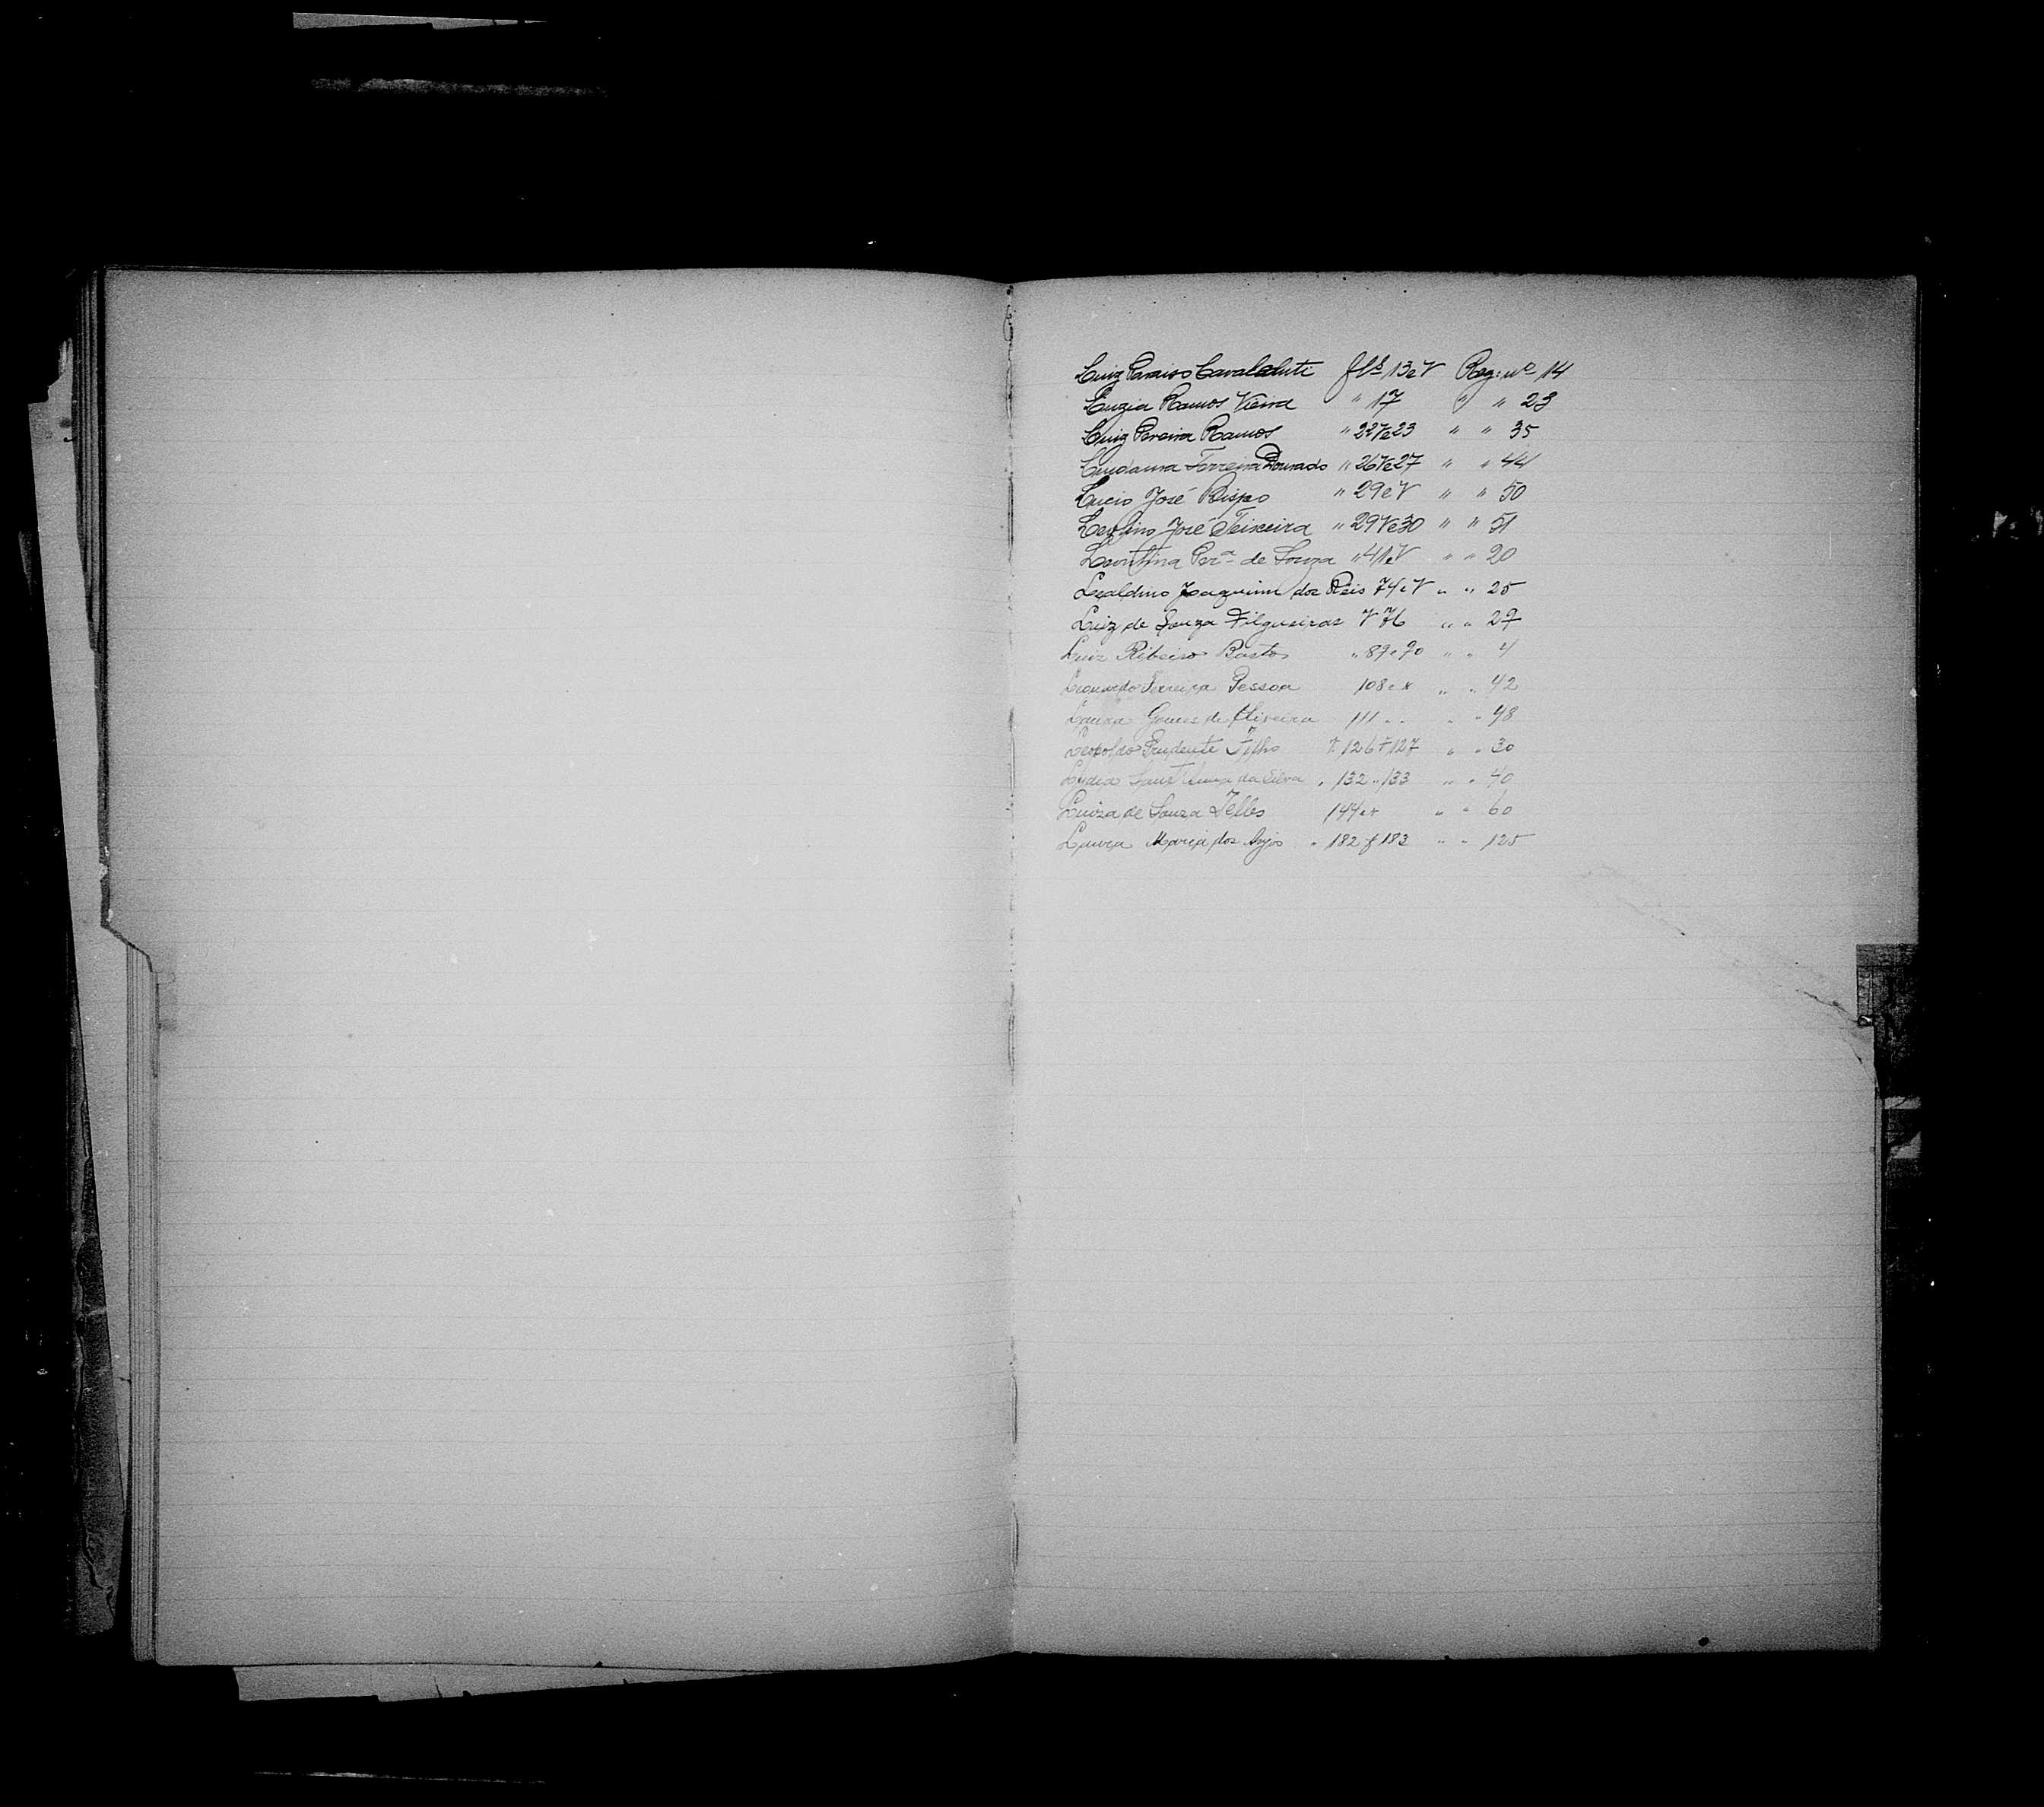 Luiz Paraiso Cavalcluti fls 13 e V Reg: nº 14
Luzia Ramos Vieira " 17 " " 23
Luiz Pereira Ramos " 22V e 23 " " 35
Ferreira Dourado " 26V e 27 " " 44
Lucio José Bispo " 29 e V " " 50
José Teixeira " 29V e 30 " " 51
Leontina Perª de Souza " 41 e V " " 20
Lealdino Joaquim dos Reis 74 e V " " 25
Luiz de Souza Filgueiras V 76 " " 27
Luiz Ribeiro Bastos " 89 e 90 " " 4
Leonardo Ferreira Pessoa 108 e v " " 42
Laura Gomes de Oliveira 111 " " " " 48
Leopoldo Prudente Filho 126 127 " " 30
Lydia da Silva " 132 " 133 " " 40
Luiza de Souza Telles 144 e v " " 60
Laura Maria dos Anjos " 182 183 " " 125